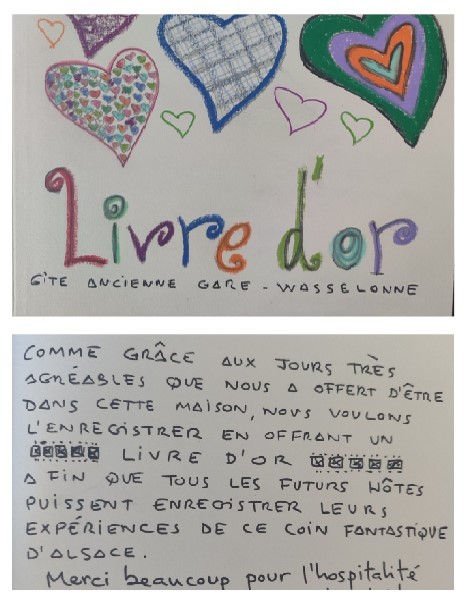 Livre d'or
GÎTE ANCIENNE GARE - WASSELONNE
COMME GRÂCE AUX JOURS TRÈS
AGRÉABLES QUE NOUS A OFFERT D'ÊTRE
DANS CETTE MAISON, NOUS VOULONS
L'ENREGISTRER EN OFFRANT UN
LIVRE D'OR
A FIN QUE TOUS LES FUTURS HÔTES
PUISSENT ENREGISTRER LEURS
EXPÉRIENCES DE CE COIN FANTASTIQUE
D'ALSACE.
Merci beaucoup pour l'hospitalité